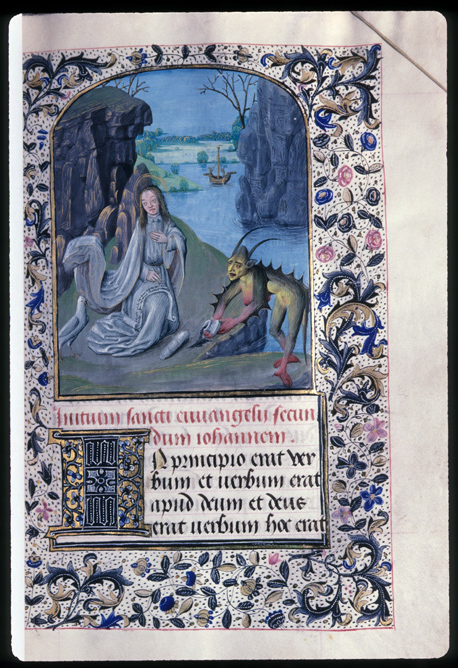 Initium sancti euuangelii secun
dum iohannem.
In principio erat ver
bum et uerbum erat
apud deum et deus
erat uerbum hoc erat